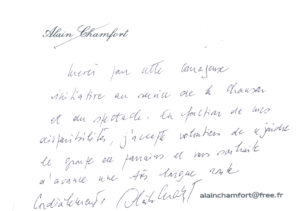 Alain Chamfort
Merci pour cette courageuse
initiative au service de la chanson
et du spectacle. En fonction de mes
disponibilités, j'accepte volontiers de rejoindre
le groupe de parrains et vous souhaite
d'avance une très longue route
Cordialement
alainchamfort@free.fr